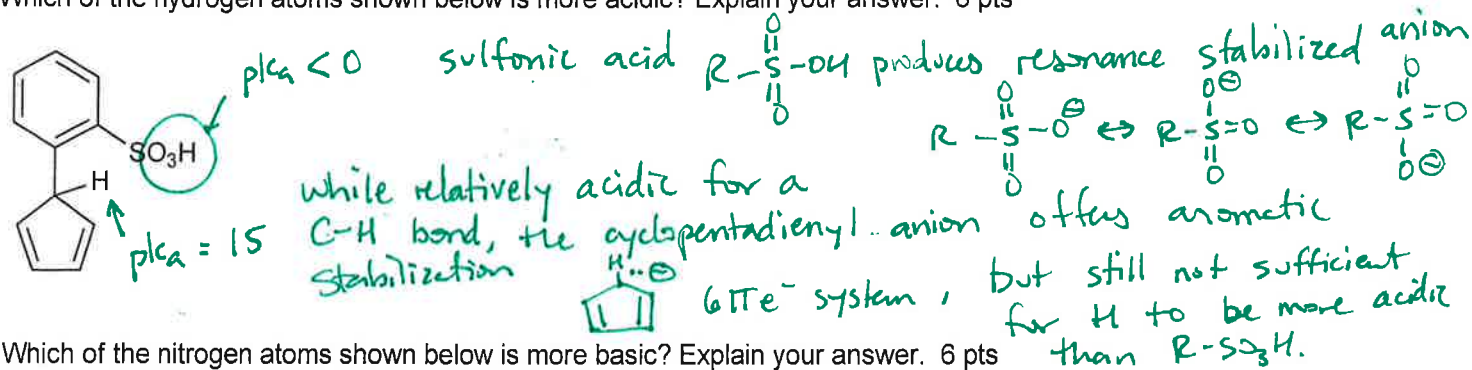 Which of the hydrogen atoms shown below is more acidic? Explain your answer. 6 pts
pka < 0 sulfonic acid R-S-OH produces resonance stabilized anion
O O
O O⊖ O
R-S-O⊖ ↔ R-S=O ↔ R-S=O
O O O⊖
SO₃H
H
pka = 15
while relatively acidic for a
C-H bond, the cyclopentadienyl anion offers aromatic
stabilization
H ⊖
6πe⁻ system, but still not sufficient
for H to be more acidic
than R-SO₃H.
Which of the nitrogen atoms shown below is more basic? Explain your answer. 6 pts